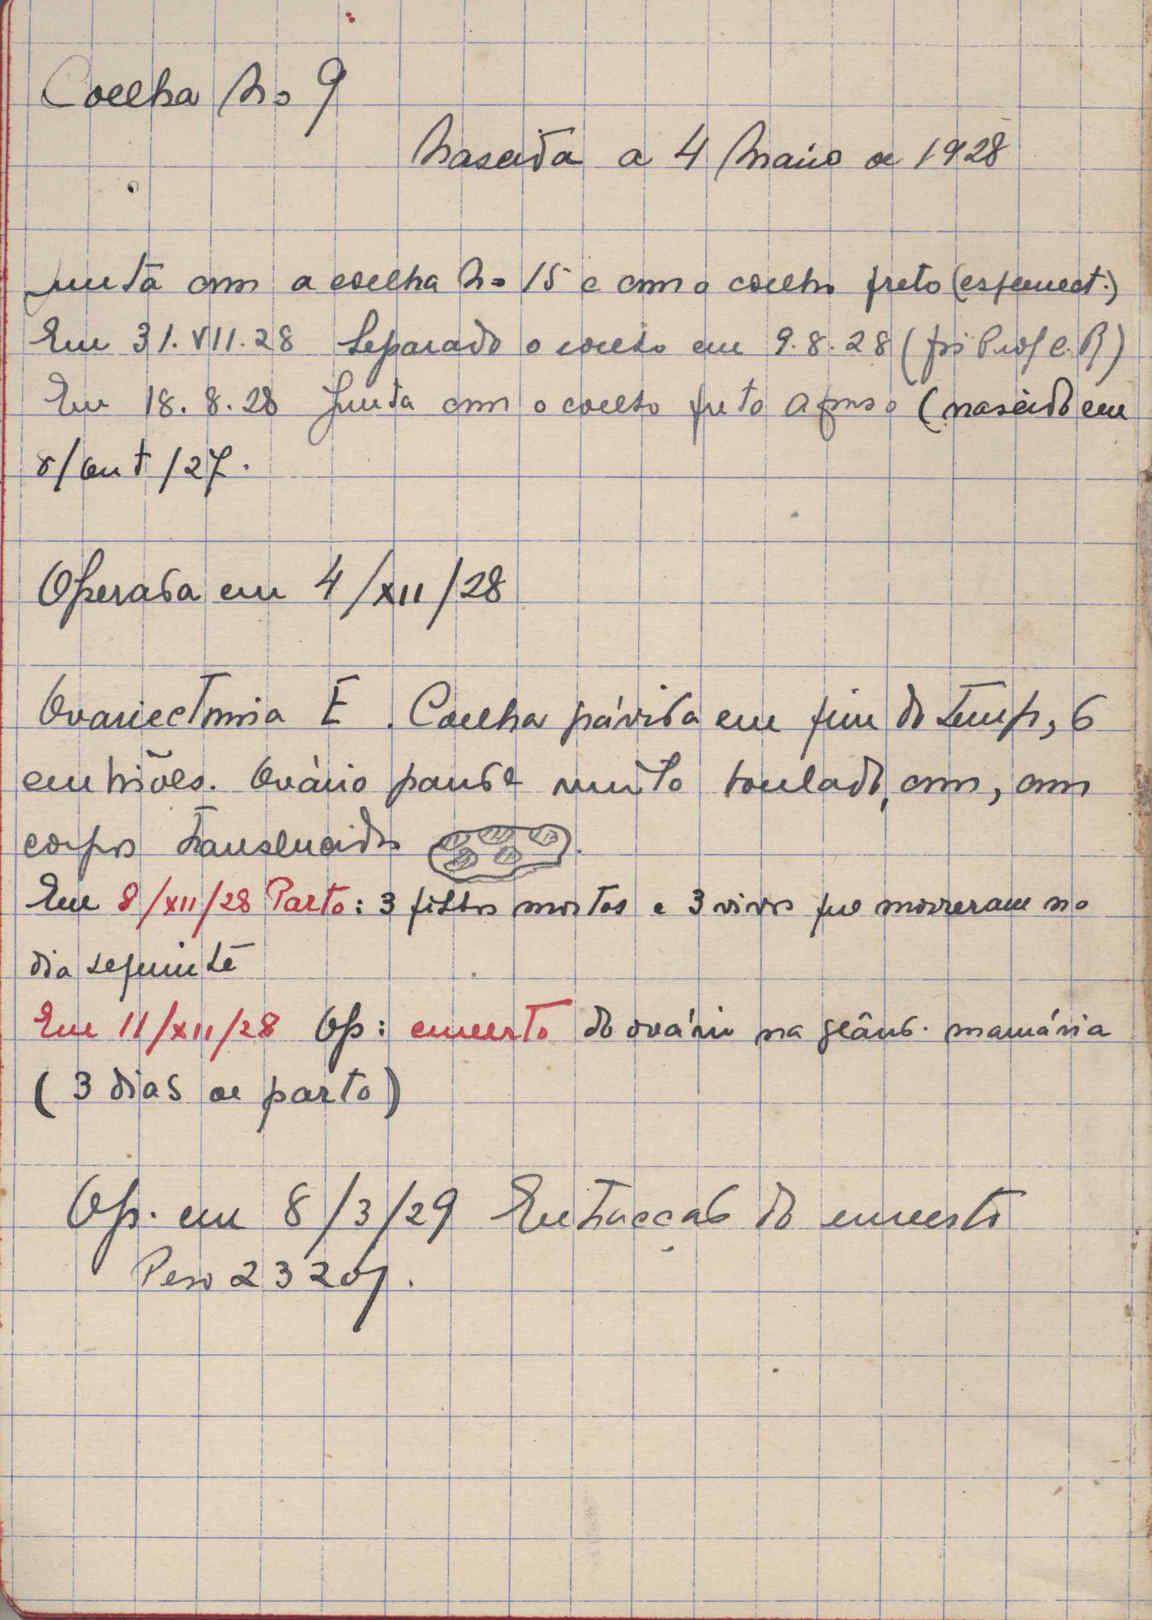 Coelha No 9
Nascida a 4 Maio de 1928
Junta com a coelha No 15 e com o coelho preto (esferment.)
Em 31.VII.28 Separado o coelho em 9.8.28 (foi Prof C.R)
Em 18.8.28 Junta com o coelho preto Afonso (nascido em
8/out/27.
Operada em 4/XII/28
Ovariectomia E. Coelha grávida em fim do temp, 6
embriões. Ovário grande muito, com, com
corpos translucidos.
Em 8/XII/28 Parto: 3 filhos mortos e 3 vivos que morreram no
dia seguinte
Em 11/XII/28 Op: enxerto do ovário na glând. mamária
(3 dias de parto)
Op. em 8/3/29 Extracção do enxerto
Peso 2320g.